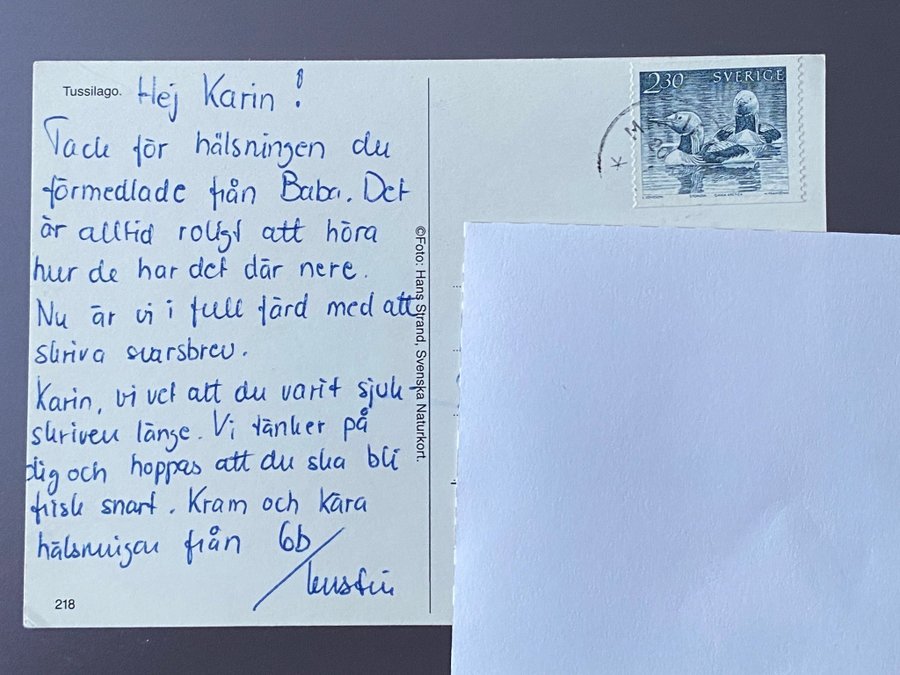 Tussilago.
Hej Karin!
Tack för hälsningen du
förmedlade från Baba. Det
är alltid roligt att höra
hur de har det där nere.
Nu är vi i full färd med att
skriva svarsbrev.
Karin, vi vet att du varit sjuk-
skriven länge. Vi tänker på
dig och hoppas att du ska bli
frisk snart. Kram och kära
hälsningar från 6b
218
©Foto: Hans Strand, Svenska Naturkort.
2.30 SVERIGE